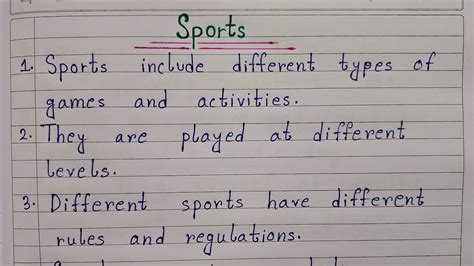 Sports
1. Sports include different types of
games and activities.
2. They are played at different
levels.
3. Different sports have different
rules and regulations.